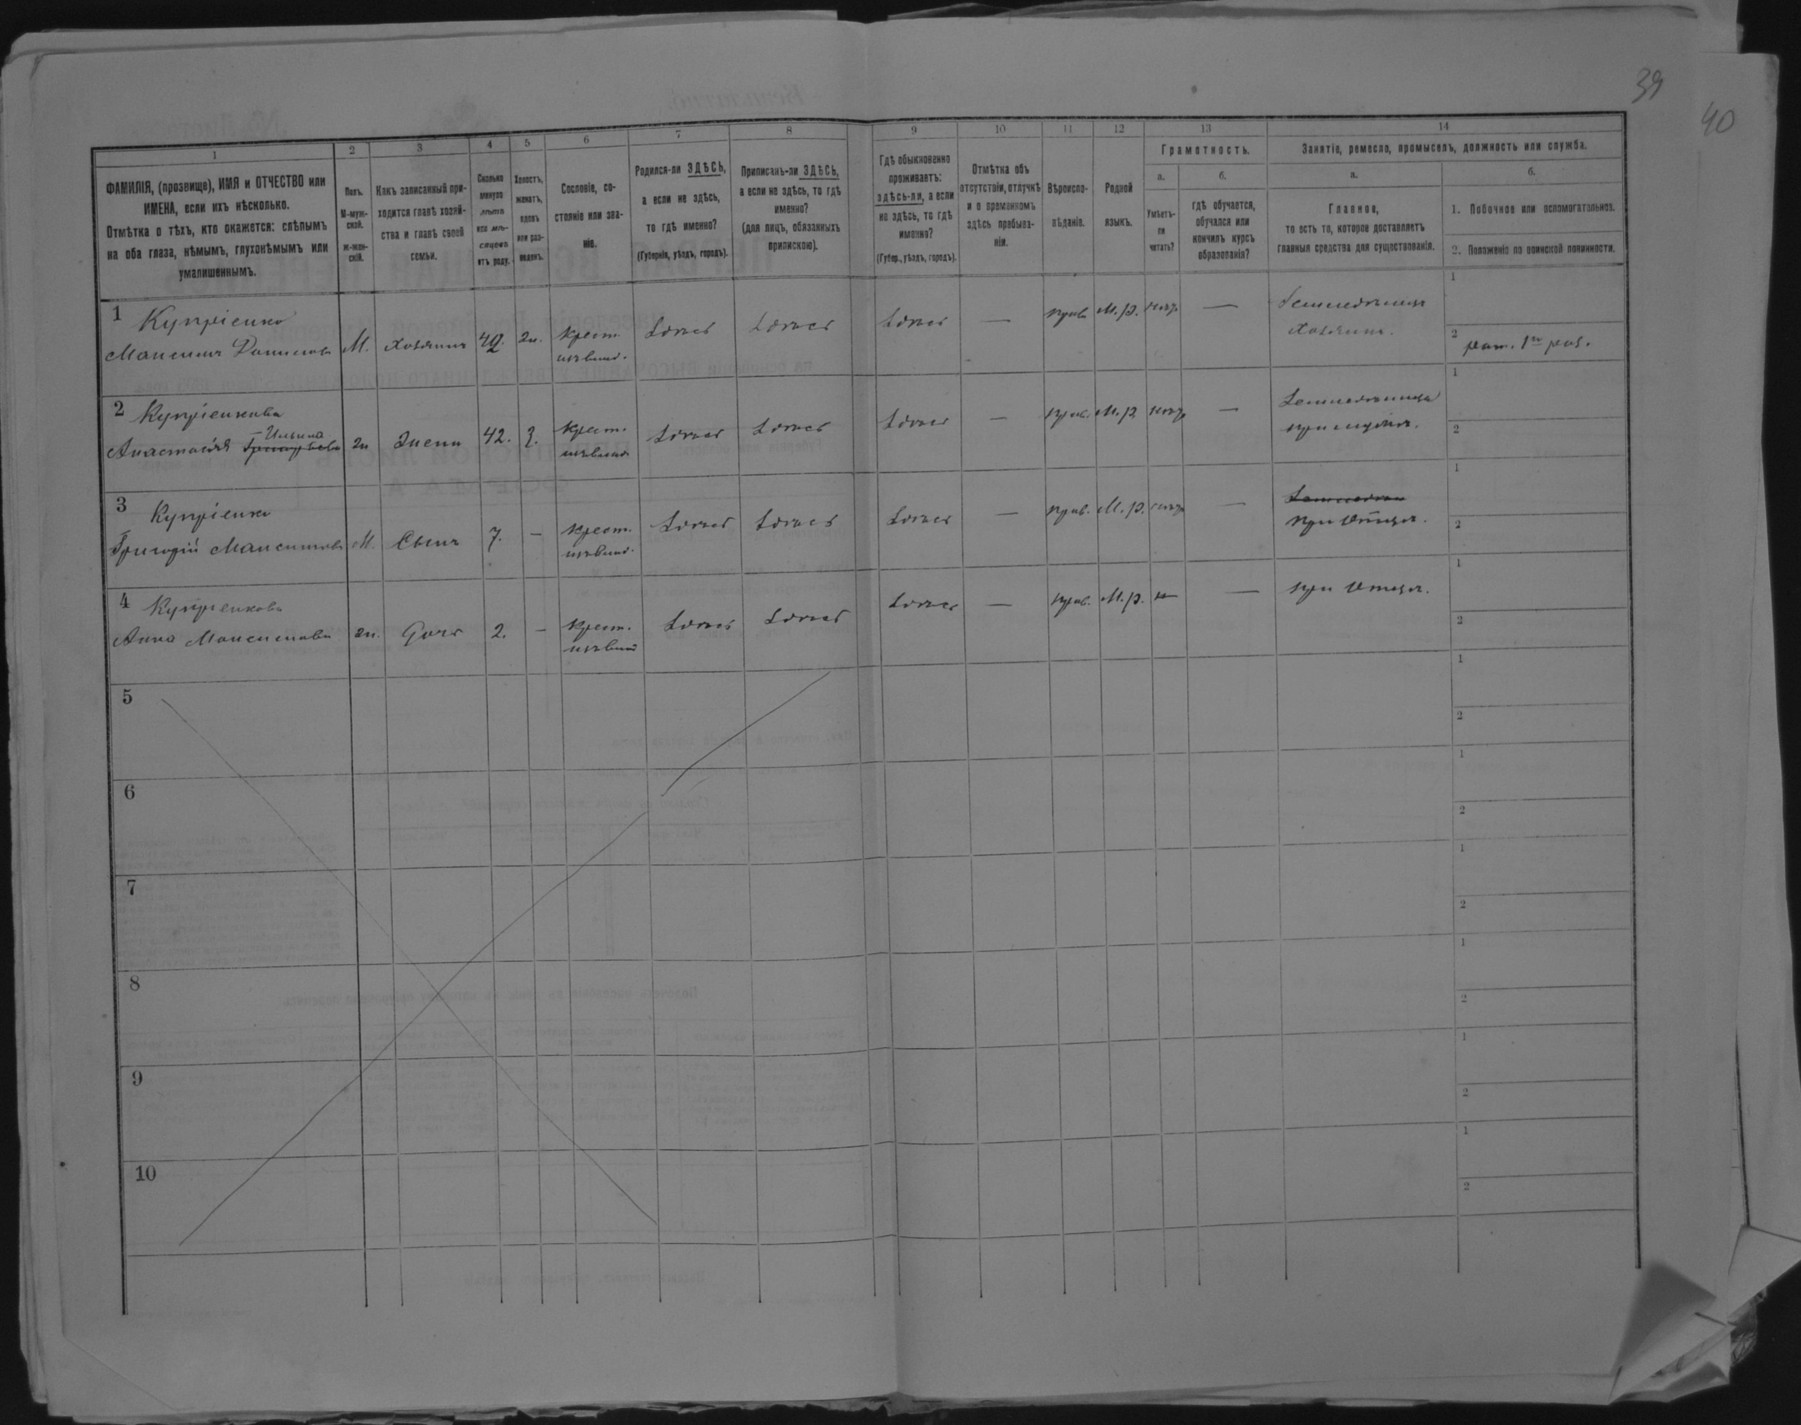 39
40
1 2 3 4 5 6 7 8 9 10 11 12 13 14
ФАМИЛІЯ, (прозвище), ИМЯ и ОТЧЕСТВО или
ИМЕНА, если ихъ нѣсколько.
Отмѣтка о тѣхъ, кто окажется: слѣпымъ
на оба глаза, нѣмымъ, глухонѣмымъ или
умалишеннымъ.
Полъ.
М-муж-
ской.
Ж-жен-
скій.
Какъ записанный при-
ходится главѣ хозяй-
ства и главѣ своей
семьи.
Сколько
минуло
лѣтъ
или мѣ-
сяцевъ
отъ роду.
Холостъ,
женатъ,
вдовъ
или раз-
веденъ.
Сословіе, со-
стояніе или зва-
ніе.
Родился-ли ЗДѢСЬ,
а если не здѣсь,
то гдѣ именно?
(Губернія, уѣздъ, городъ).
Приписанъ-ли ЗДѢСЬ,
а если не здѣсь, то гдѣ
именно?
(для лицъ, обязанныхъ
припискою).
Гдѣ обыкновенно
проживаетъ:
здѣсь-ли, а если
не здѣсь, то гдѣ
именно?
(Губер., уѣздъ, городъ).
Отмѣтка объ
отсутствіи, отлучкѣ
и о временномъ
здѣсь пребыва-
ніи.
Вѣроиспо-
вѣданіе.
Родной
языкъ.
Грамотность.
а.
Умѣетъ-
ли
читать?
б.
гдѣ обучается,
обучался или
кончилъ курсъ
образованія?
Занятіе, ремесло, промыселъ, должность или служба.
а.
Главное,
то есть то, которое доставляетъ
главныя средства для существованія.
б.
1. Побочное или вспомогательное.
2. Положеніе по воинской повинности.
1 Купріенко
Максимъ М. Хозяинъ 42. ж. Крест. Здѣсь Здѣсь Здѣсь — прав. М.р. —
Хозяинъ.
1
2 рат. 1го раз.
2 Купріенкова
Ильина
Анастасія ж Жена 42. З. Крест. Здѣсь Здѣсь Здѣсь — прав. М.р. —
при мужѣ.
1
2
3 Купріенко
Григорій Максимовъ М. Сынъ 7. — Крест. Здѣсь Здѣсь Здѣсь — прав. М.р. —
при Отцѣ.
1
2
4 Купріенкова
Анна Максимова ж. Дочь 2. — Крест. Здѣсь Здѣсь Здѣсь — прав. М.р. — при Отцѣ.
1
2
5
1
2
6
1
2
7
1
2
8
1
2
9
1
2
10
1
2